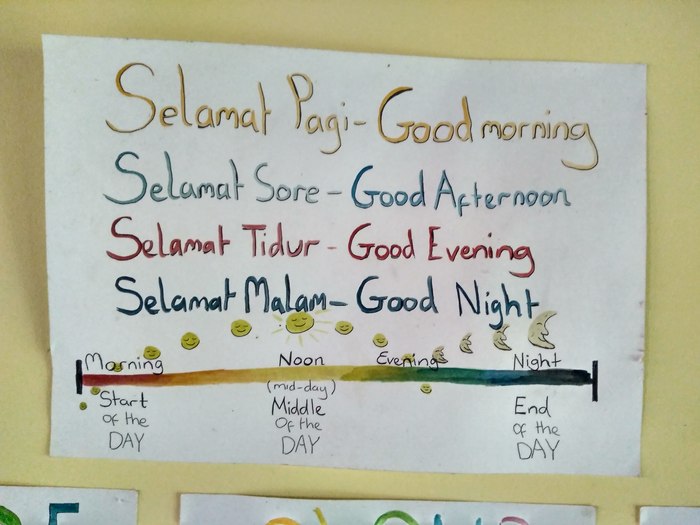 Selamat Pagi - Good morning
Selamat Sore - Good Afternoon
Selamat Tidur - Good Evening
Selamat Malam - Good Night
Morning Noon Evening Night
(mid-day)
Start Middle End
of the Of the of the
DAY DAY DAY